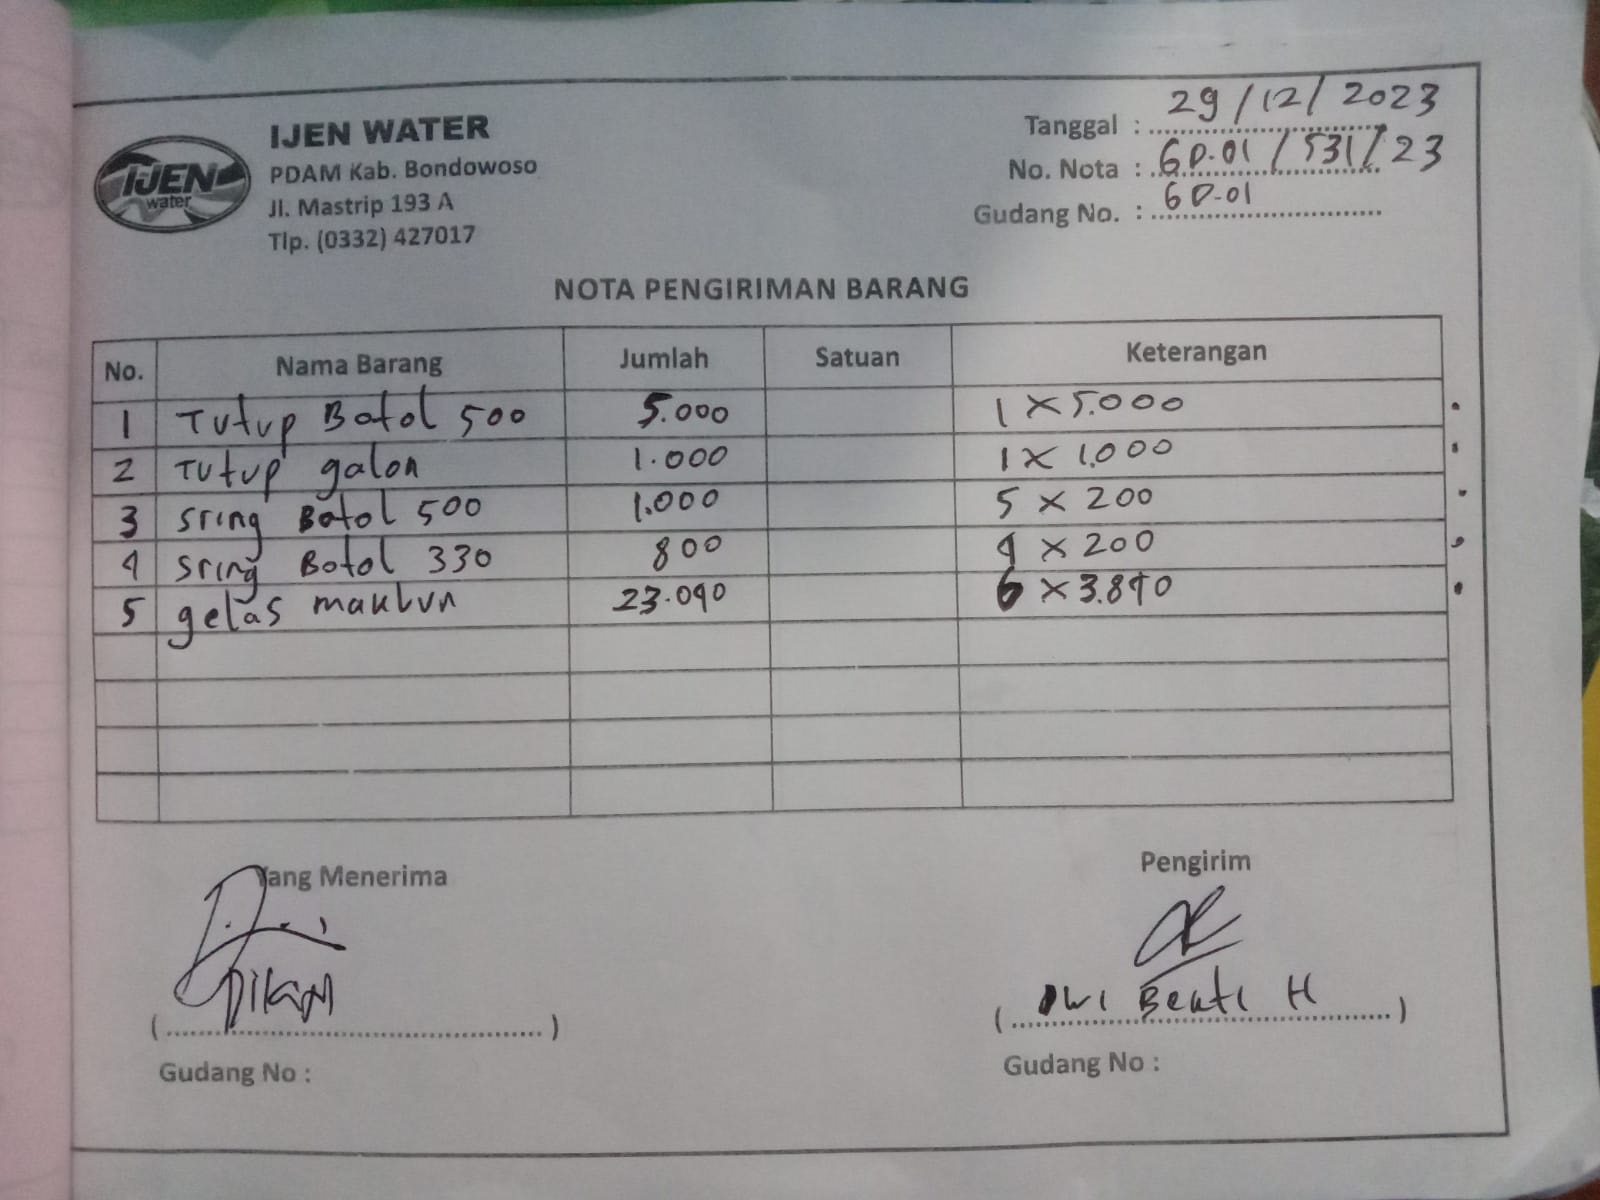 IJEN
water
IJEN WATER
PDAM Kab. Bondowoso
Jl. Mastrip 193 A
Tlp. (0332) 427017
Tanggal : 29/12/2023
No. Nota : GD.01/531/23
Gudang No. : GD-01
NOTA PENGIRIMAN BARANG
No. Nama Barang Jumlah Satuan Keterangan
1 Tutup Botol 500 5.000 1 x 5.000
2 Tutup galon 1.000 1 x 1.000
3 sring Botol 500 1.000 5 x 200
4 sring Botol 330 800 4 x 200
5 gelas maklun 23.040 6 x 3.840
Yang Menerima
Pengirim
( Dikan )
( Dwi Bekti H )
Gudang No :
Gudang No :